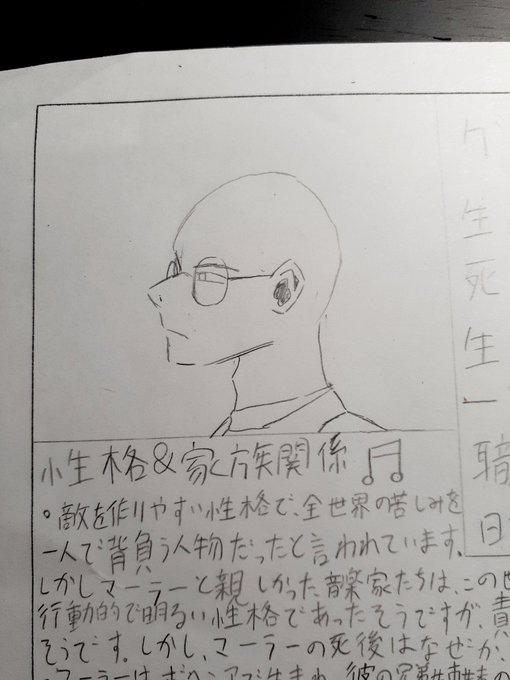 性格&家族関係
。敵を作りやすい性格で、全世界の苦しみを
一人で背負う人物だったと言われています。
しかしマーラーと親しかった音楽家たちは、この世
行動的で明るい性格であったそうですが、責
そうです。しかし、マーラーの死後はなぜか、
・マーラーは、ボヘミアで生まれ、彼の兄弟姉妹の
グ
生
死
生
職
日